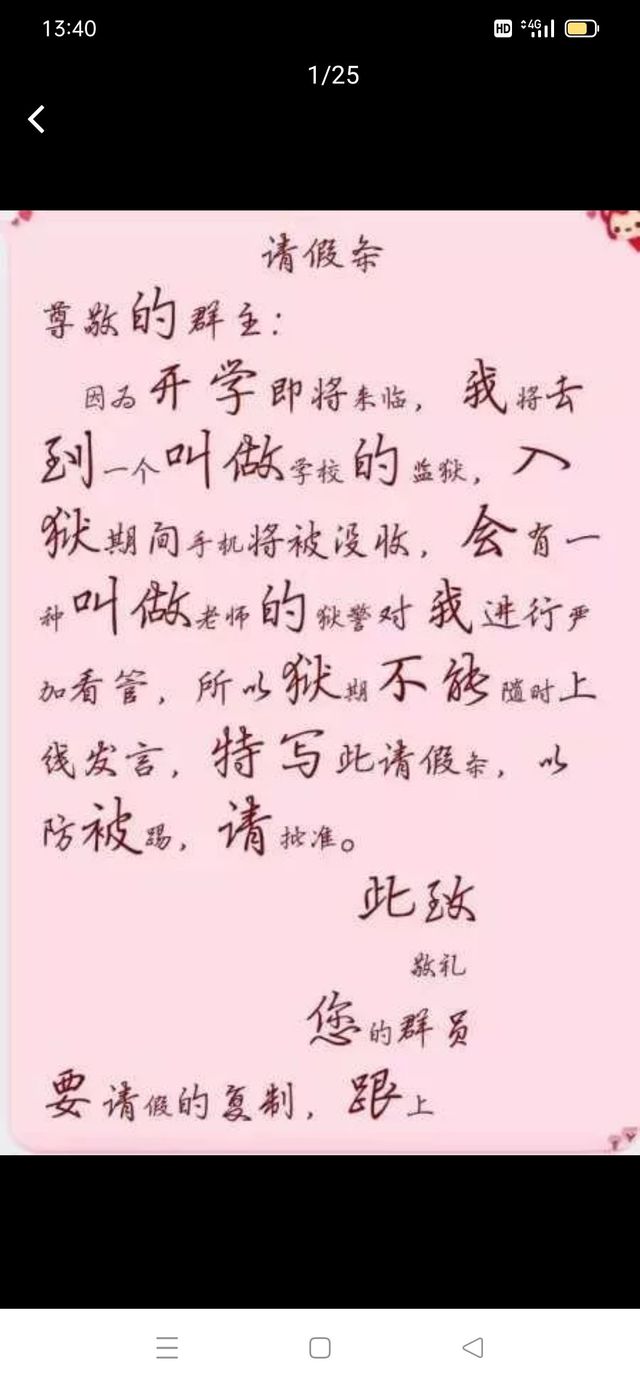 13:40
HD 4G
1/25
请假条
尊敬的群主：
因为开学即将来临，我将去
到一个叫做学校的监狱，入
狱期间手机将被没收，会有一
种叫做老师的狱警对我进行严
加看管，所以狱期不能随时上
线发言，特写此请假条，以
防被踢，请批准。
此致
敬礼
您的群员
要请假的复制，跟上